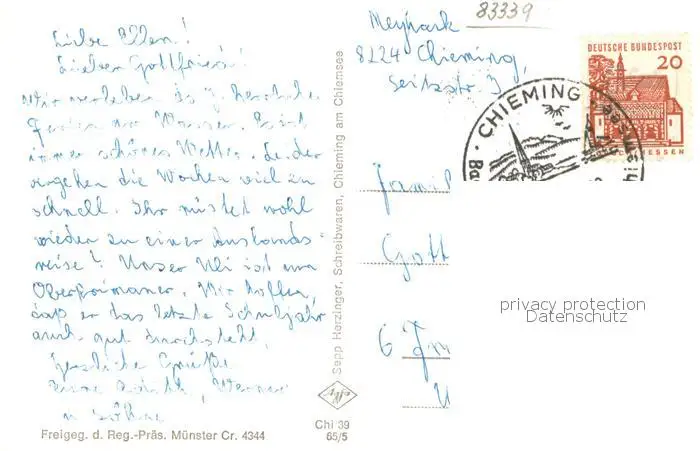 Liebe Ellen!
Lieber Gottfried!
Wir verleben da z. herrliche
Ferien am Wasser. Es ist
immer schönes Wetter. Leider
vergehen die Wochen viel zu
schnell. Ihr rüstet wohl
wieder zu einer Auslands-
reise? Unser Uli ist nun
Oberprimaner. Wir hoffen,
daß er das letzte Schuljahr
auch gut durchsteht.
Herzliche Grüße
Eure Werner
u. Söhne
Freigeg. d. Reg.-Präs. Münster Cr. 4344
Sepp Herzinger, Schreibwaren, Chieming am Chiemsee
Chi 39
65/5
83339
8224 Chieming,
Seitzstr. 3
DEUTSCHE BUNDESPOST
20
HESSEN
CHIEMING
Famil
Gott
6
privacy protection
Datenschutz